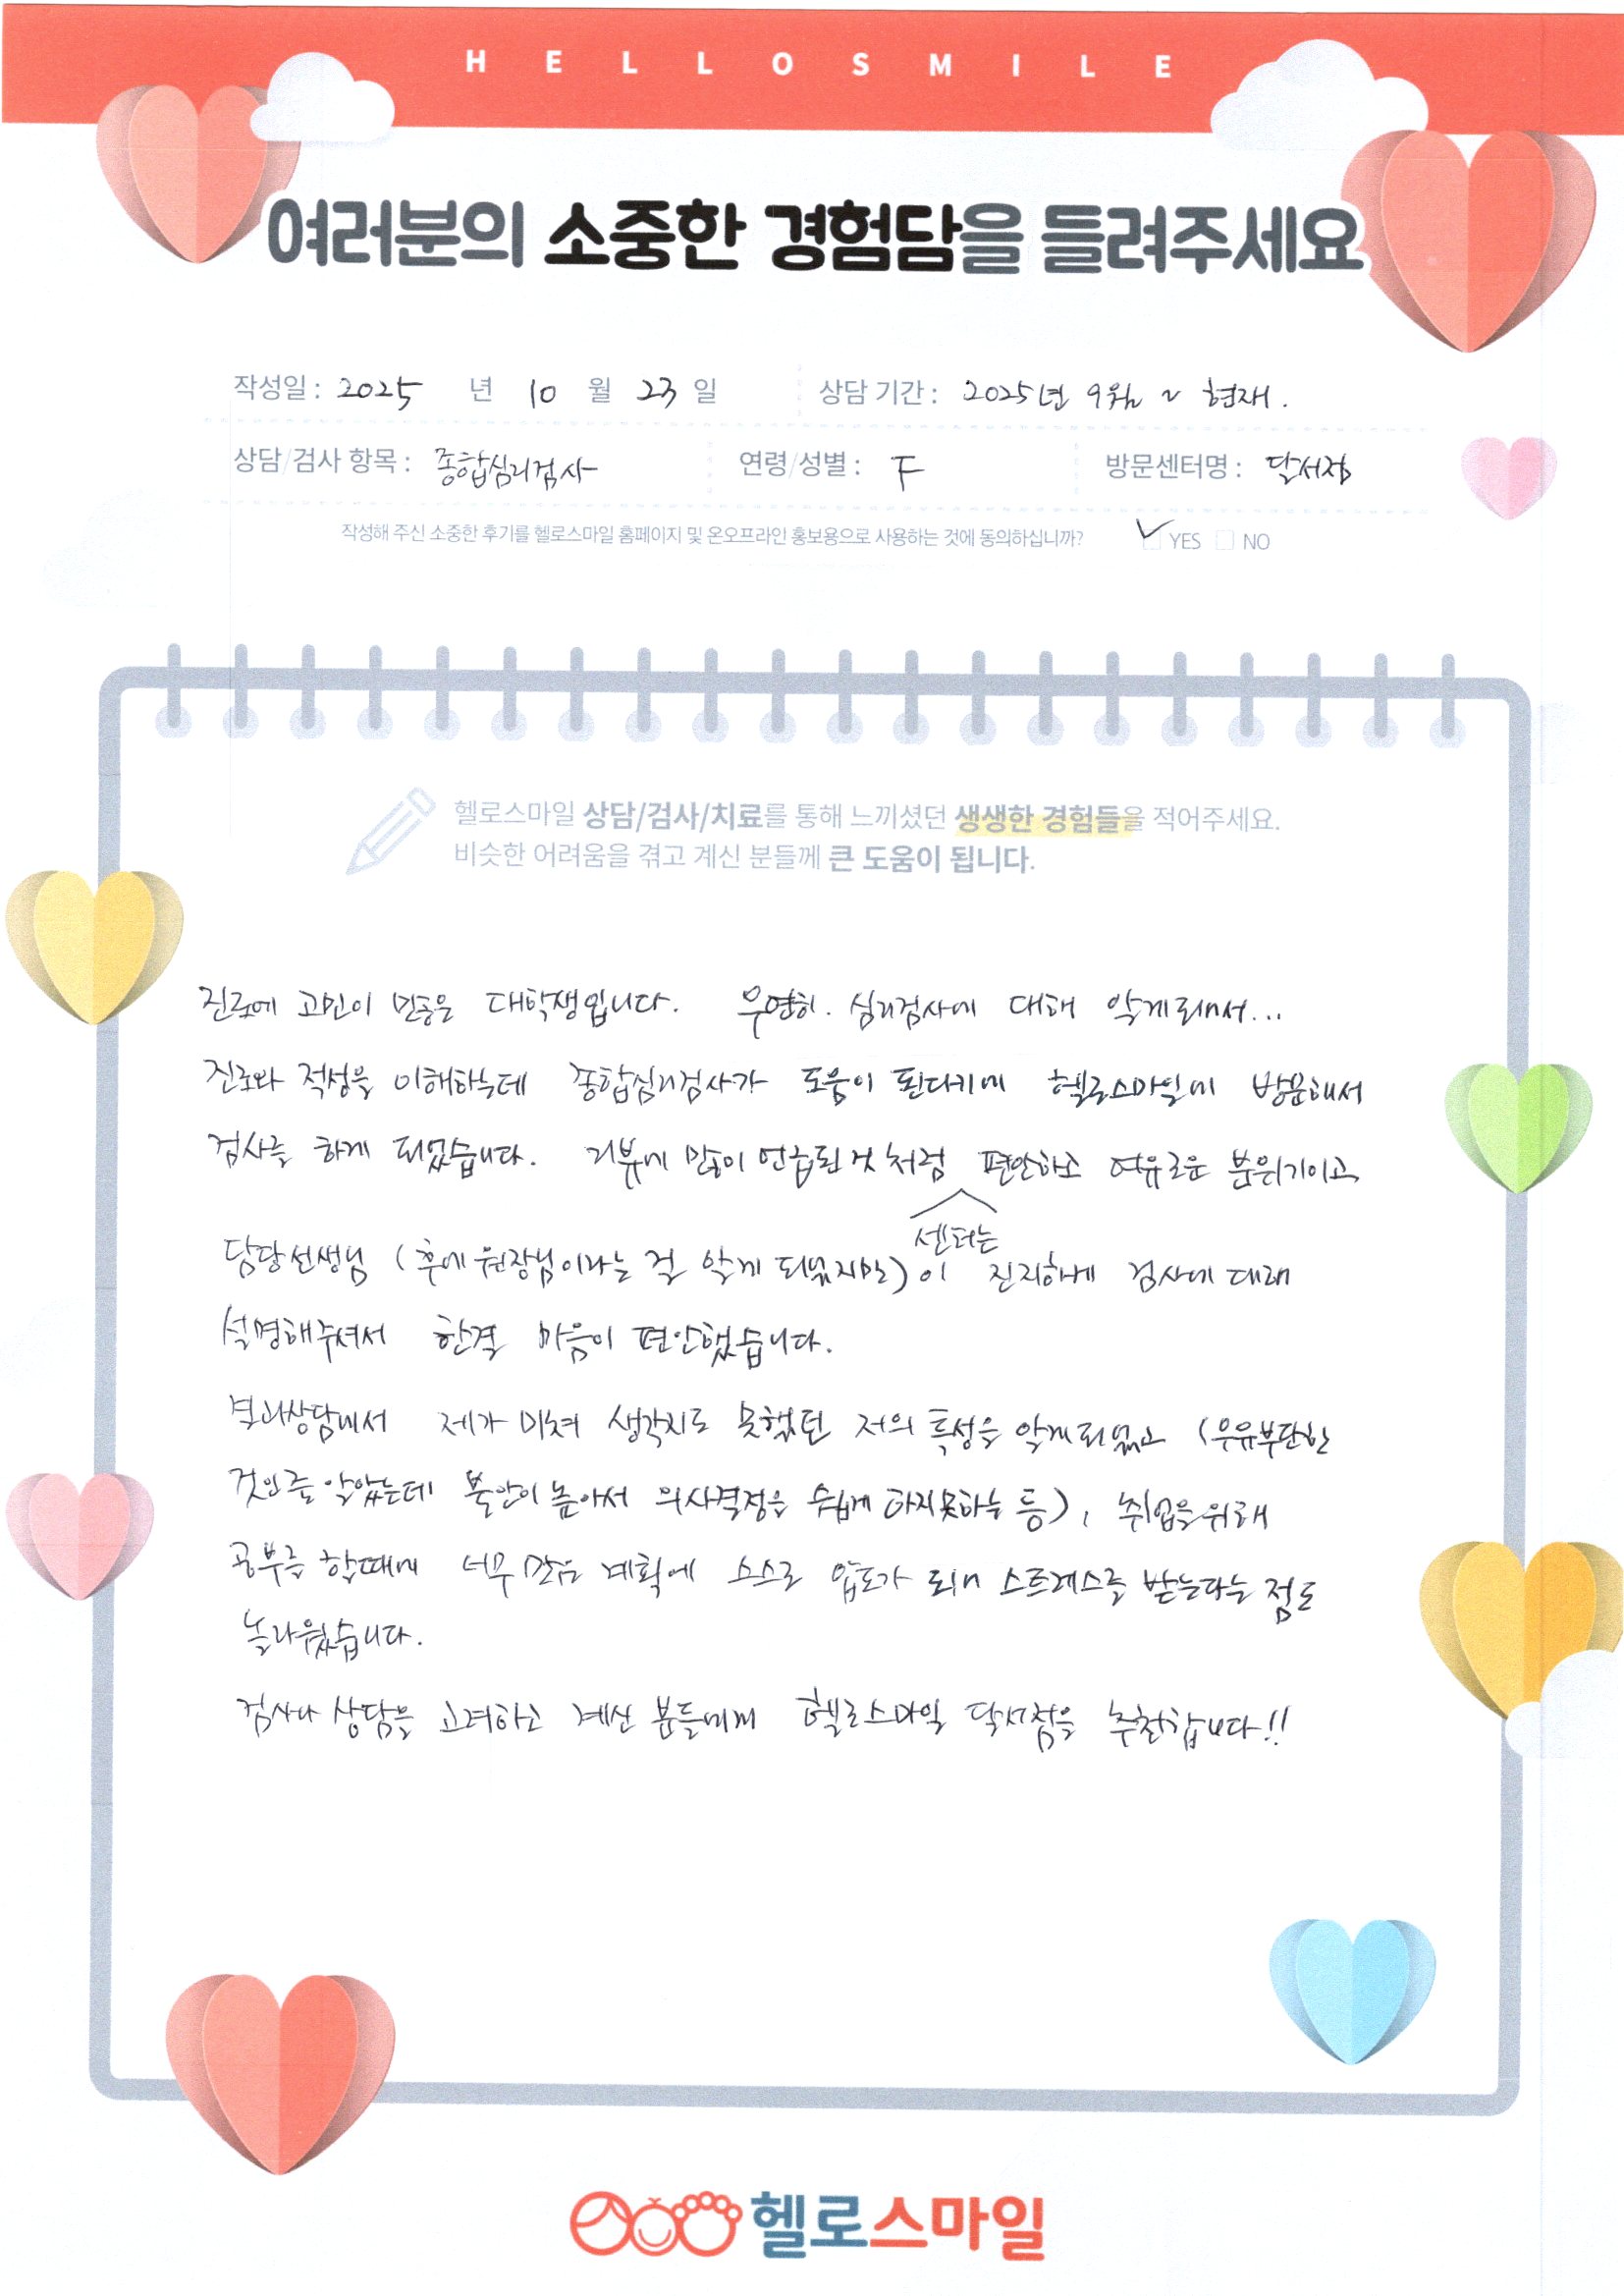 HELLOSMILE
여러분의 소중한 경험담을 들려주세요
작성일 : 2025 년 10 월 23 일 상담 기간 : 2025년 9월 ~ 현재.
상담/검사 항목 : 종합심리검사 연령/성별 : F 방문센터명 : 달서점
작성해 주신 소중한 후기를 헬로스마일 홈페이지 및 온오프라인 홍보용으로 사용하는 것에 동의하십니까? YES NO
헬로스마일 상담/검사/치료를 통해 느끼셨던 생생한 경험들을 적어주세요.
비슷한 어려움을 겪고 계신 분들께 큰 도움이 됩니다.
진로에 고민이 많은 대학생입니다. 우연히. 심리검사에 대해 알게되어서...
진로와 적성을 이해하는데 종합심리검사가 도움이 된다기에 헬로스마일에 방문해서
검사를 하게 되었습니다. 리뷰에 많이 언급된 것 처럼 편안하고 여유로운 분위기이고,
센터는
담당선생님 (후에 원장님이라는 걸 알게 되었지만)이 진지하게 검사에 대해
설명해주셔서 한결 마음이 편안했습니다.
결과상담에서 제가 미쳐 생각지도 못했던 저의 특성을 알게되었고 (우유부단한
것인줄 알았는데 불안이 높아서 의사결정을 쉽게 하지못하는 등), 취업을위해
공부를 할때에 너무 많은 계획에 스스로 압도가 되어 스트레스를 받는다는 점도
놀라웠습니다.
검사나 상담을 고려하고 계신 분들에게 헬로스마일 달서점을 추천합니다!!
헬로스마일